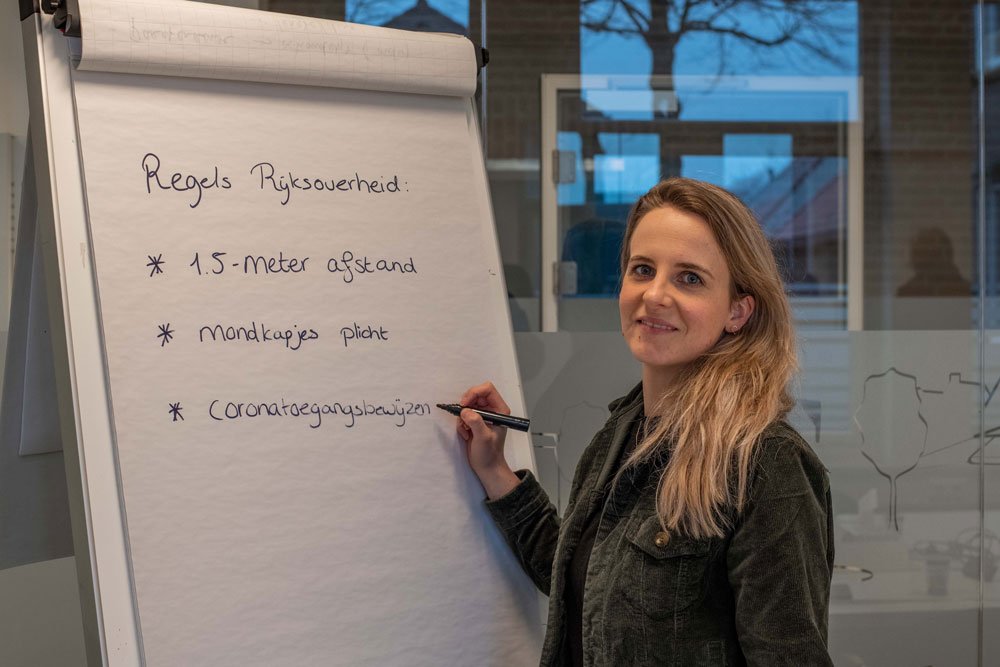 Regels Rijksoverheid:
* 1.5-meter afstand
* mondkapjes plicht
* coronatoegangsbewijzen